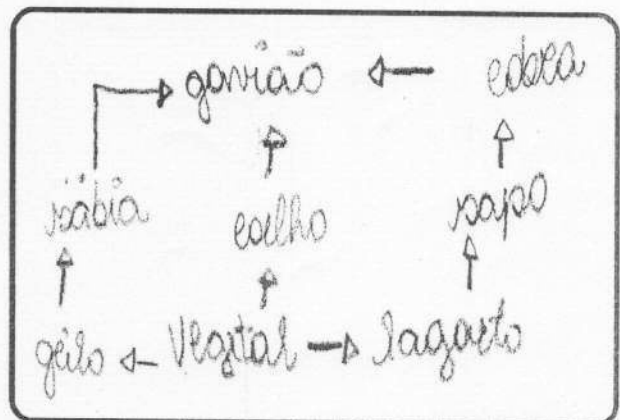 gavião cobra
sábia coelho sapo
grilo Vegetal lagarto